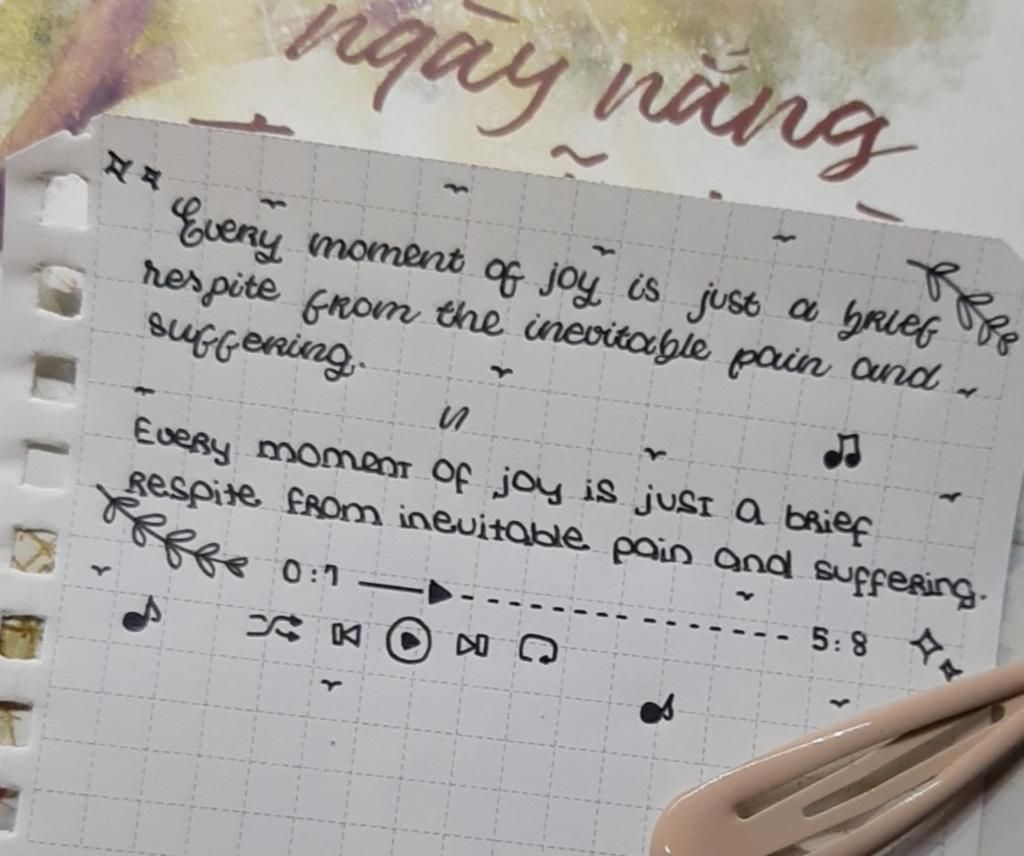 ngày nắng
Every moment of joy is just a brief
respite from the inevitable pain and
suffering.
Every moment of joy is just a brief
respite from inevitable pain and suffering.
0:7
5:8